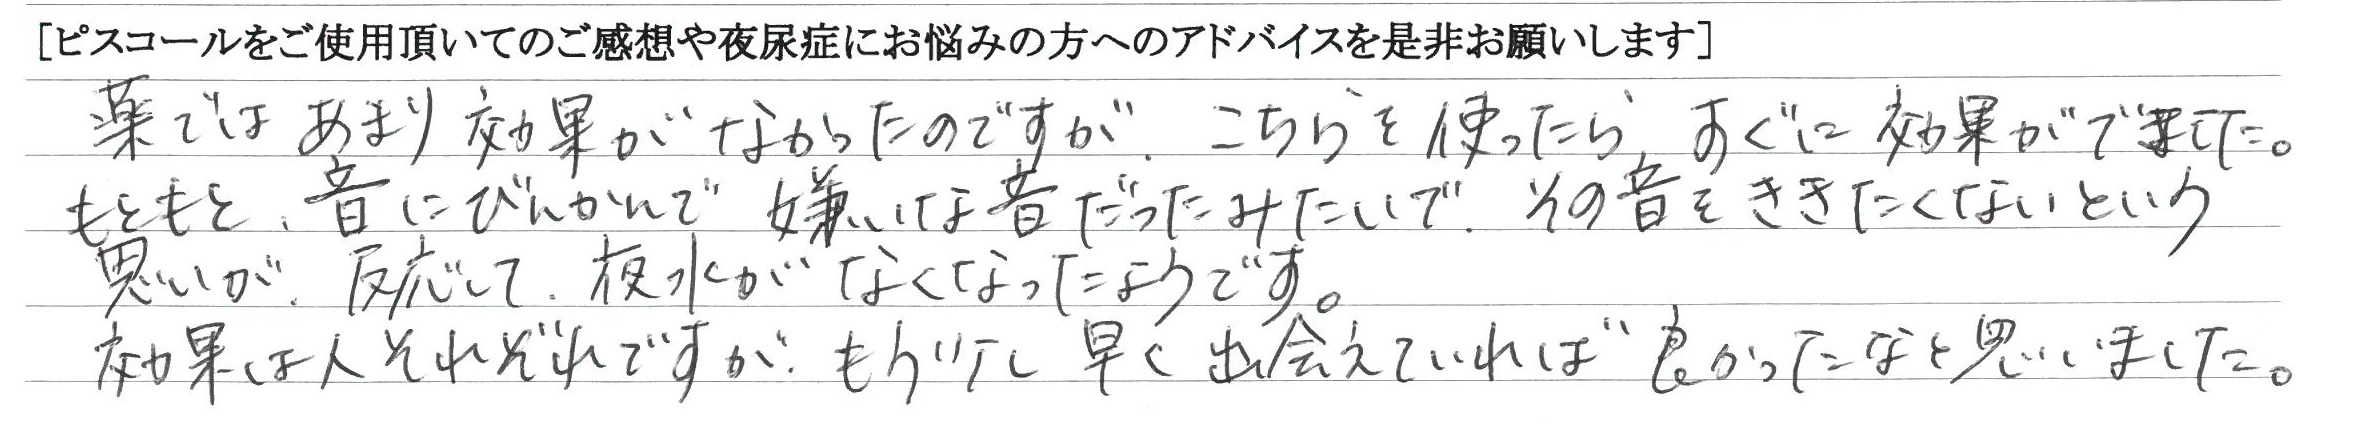 [ピスコールをご使用頂いてのご感想や夜尿症にお悩みの方へのアドバイスを是非お願いします]
薬ではあまり効果がなかったのですが、こちらを使ったら、すぐに効果がでました。
もともと、音にびんかんで嫌いな音だったみたいで、その音をききたくないという
思いが、反応して、夜水がなくなったようです。
効果は人それぞれですが、もう少し早く出会えていれば良かったなと思いました。